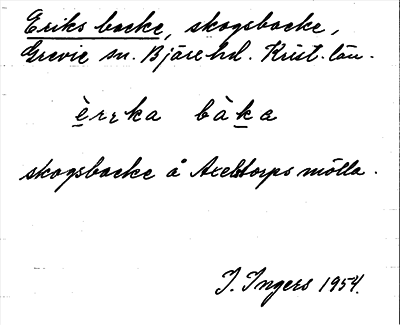 Eriks backe, skogsbacke,
Grevie sn. Bjäre hd. Krist. län.
èrʀka bàka
skogsbacke å Axelstorps mölla.
I. Ingers 1954.